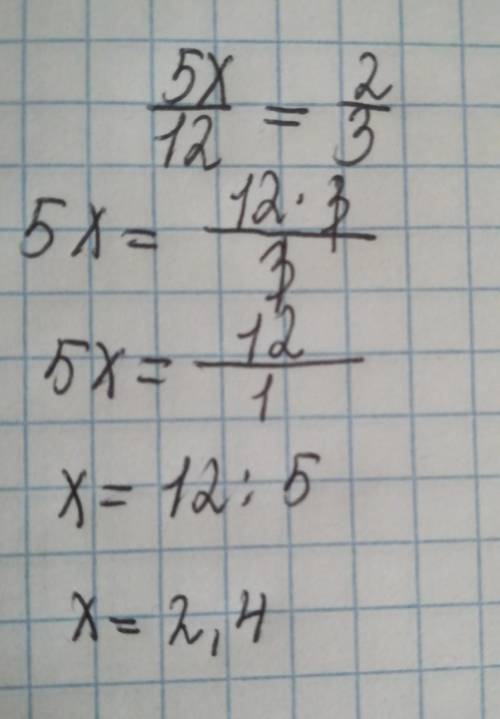 5x/12 = 2/3
5x = 12 · 3/3
5x = 12/1
x = 12 : 5
x = 2,4